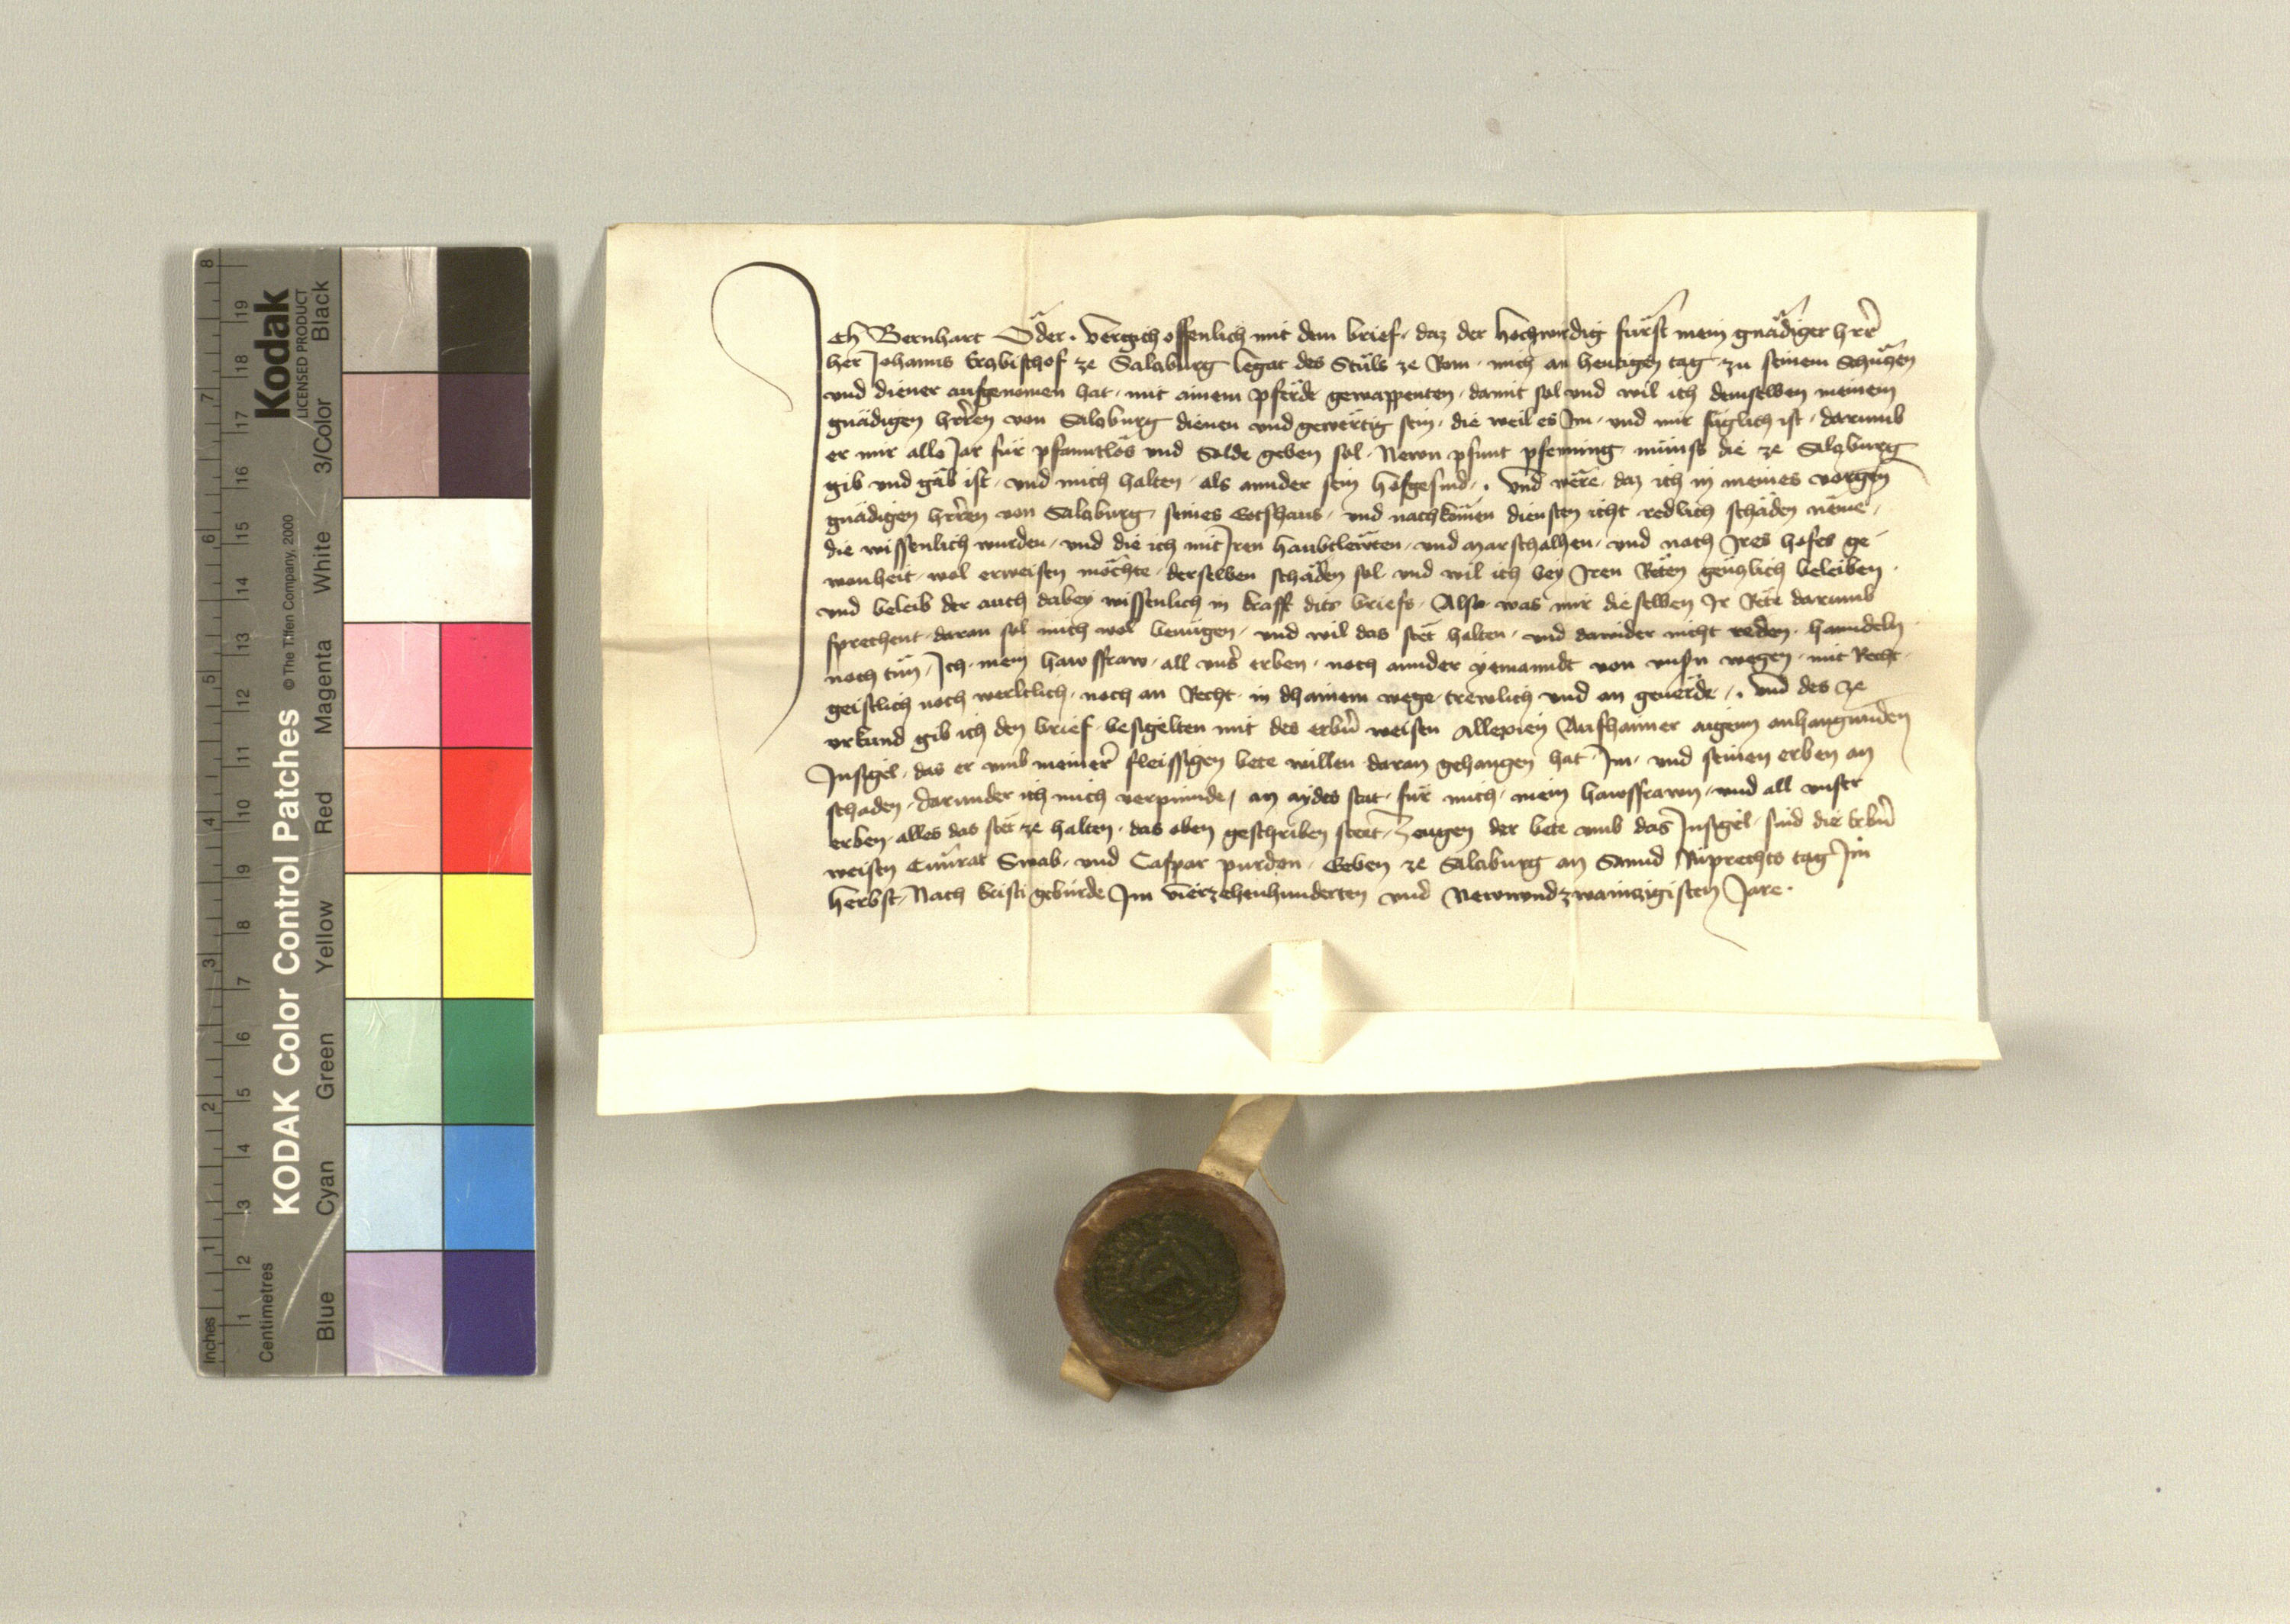 Ich Bernhart Öder. vergich offenlich mit dem brief, daz der hochwirdig fürst mein gnädiger hrr̄
her Johanns Ercbischof ze Salcburg Legat des Stůls ze Rom, mich an heutigen tag zu seinem Schüczen
und diener aufgenomen hat, mit ainem pferde gewappenten, damit sol und wil ich demselben meinem
gnädigen hrr̄en von Salcburg dienen und gewërtig sein, die weil es Im, und mir füglich ist, darumb
er mir alle Jar für pfanntlos und Solde geben sol, Newn pfunt pfenning, münss die ze Salcburg
gib und gäb ist, und mich halten, als annder sein hofgesind. Und wëre, daz ich in meines vorgen̄
gnädigen hrr̄en von Salcburg, seines Gotshaus, und nachkömen diensten icht redlich schäden näme,
die wissenlich wurden, und die ich mit Iren haubtlewten, und marschalhen, und nach Ires hofes ge-
wonheit, wol erweisen möchte, derselben schäden sol, und wil ich bey Iren Rëten genczlich beleiben.
und beleib der auch dabey wissenlich in krafft dits briefs. Also was mir dieselben Ir Rëte darumb
sprechent, daran sol mich wol benügen, und wil das stët halten, und dawider nicht reden, hanndeln
noch tun, Ich, mein hawsfraw, all uns̄ erben, noch annder yemanndt von unsn̄ wegen, mit Recht,
geistlich noch werltlich, noch an Recht, in dhainem wege, trewlich und an geuërde. Und des ze
urkund gib ich den brief besigelten mit des erbn̄ weisen Allexien Aufhaimer aigem anhangunden
Insigel, das er umb meiner fleissigen bete willen daran gehangen hat, Im, und seinen erben an
schaden, Darunder ich mich verpinnde, an aydes stat, für mich, mein hawsfrawn, und all unser
erben, alles das stët ze halten, das oben geschriben steet, Zeugen der bete umb das Insigel, sind die Erbn̄
weisen Cunrat Swab, und Caspar purdon, Geben ze Salcburg an Sannd Růprechts tag Im
herbst, Nach Kristi gebürde Im vierzehenhunderten und Newnundzwainczigisten Jare.
KODAK Color Control Patches © The Tiffen Company, 2000
Kodak
LICENSED PRODUCT
Inches 1 2 3 4 5 6 7 8
Centimetres 1 2 3 4 5 6 7 8 9 10 11 12 13 14 15 16 17 18 19
Blue Cyan Green Yellow Red Magenta White 3/Color Black